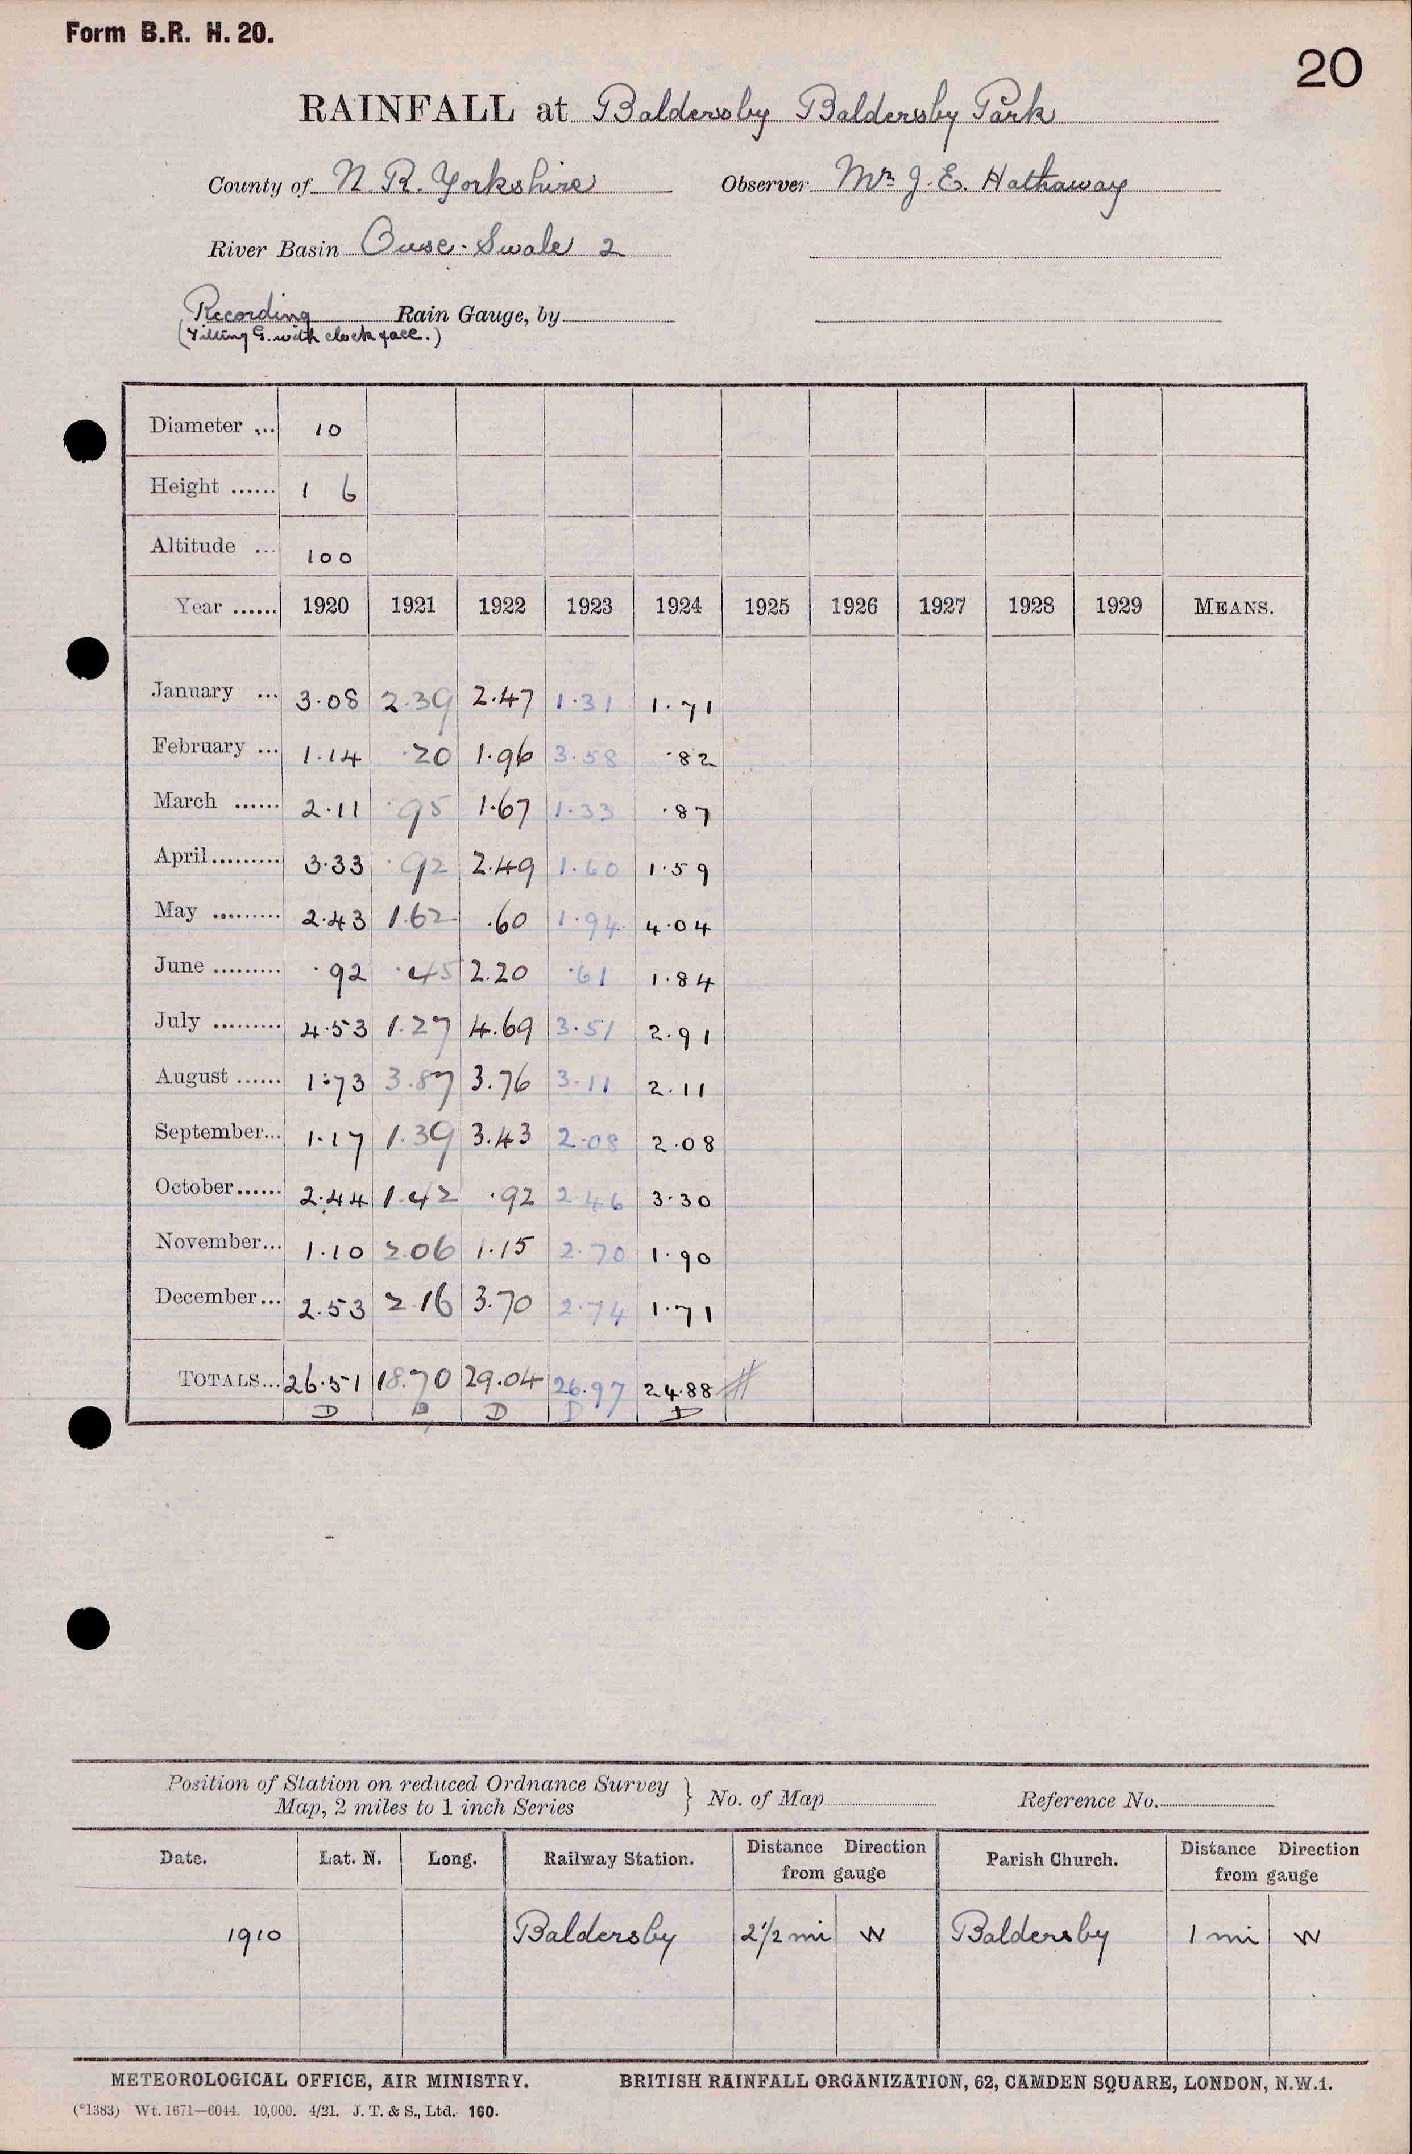 Form B.R. H. 20.
20
RAINFALL at Baldersby Baldersby Park
County of N. R. Yorkshire Observer Mr J. E. Hathaway
River Basin Ouse-Swale 2
Recording Rain Gauge, by
(Tilting G. with clock face.)
Diameter ... 10
Height ...... 1 6
Altitude ... 100
Year ...... 1920 1921 1922 1923 1924 1925 1926 1927 1928 1929 MEANS.
January ... 3.08 2.39 2.47 1.31 1.71
February ... 1.14 .20 1.96 3.58 .82
March ...... 2.11 .95 1.67 1.33 .87
April......... 3.33 .92 2.49 1.60 1.59
May ......... 2.43 1.62 .60 1.94 4.04
June ......... .92 .45 2.20 .61 1.84
July ......... 4.53 1.27 4.69 3.51 2.91
August ...... 1.73 3.87 3.76 3.11 2.11
September... 1.17 1.39 3.43 2.08 2.08
October...... 2.44 1.42 .92 2.46 3.30
November... 1.10 2.06 1.15 2.70 1.90
December... 2.53 2.16 3.70 2.74 1.71
TOTALS... 26.51 18.70 29.04 26.97 24.88 #
D D D D D
Position of Station on reduced Ordnance Survey
Map, 2 miles to 1 inch Series } No. of Map Reference No.
Date. Lat. N. Long. Railway Station. Distance Direction from gauge Parish Church. Distance Direction from gauge
1910 Baldersby 2 1/2 mi W Baldersby 1 mi W
METEOROLOGICAL OFFICE, AIR MINISTRY. BRITISH RAINFALL ORGANIZATION, 62, CAMDEN SQUARE, LONDON, N.W.1.
(*1383) Wt. 1671—6044. 10,000. 4/21. J. T. & S., Ltd. 160.